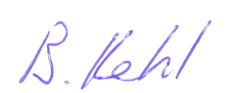 B. Kehl